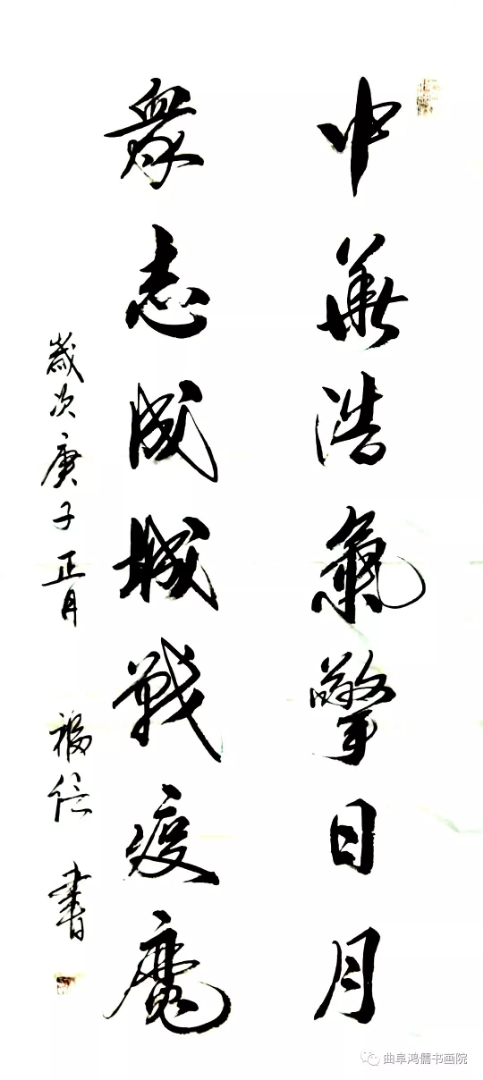 中華浩氣擎日月
衆志成城戰疫魔
歲次庚子正月 福信書
曲阜鸿儒书画院